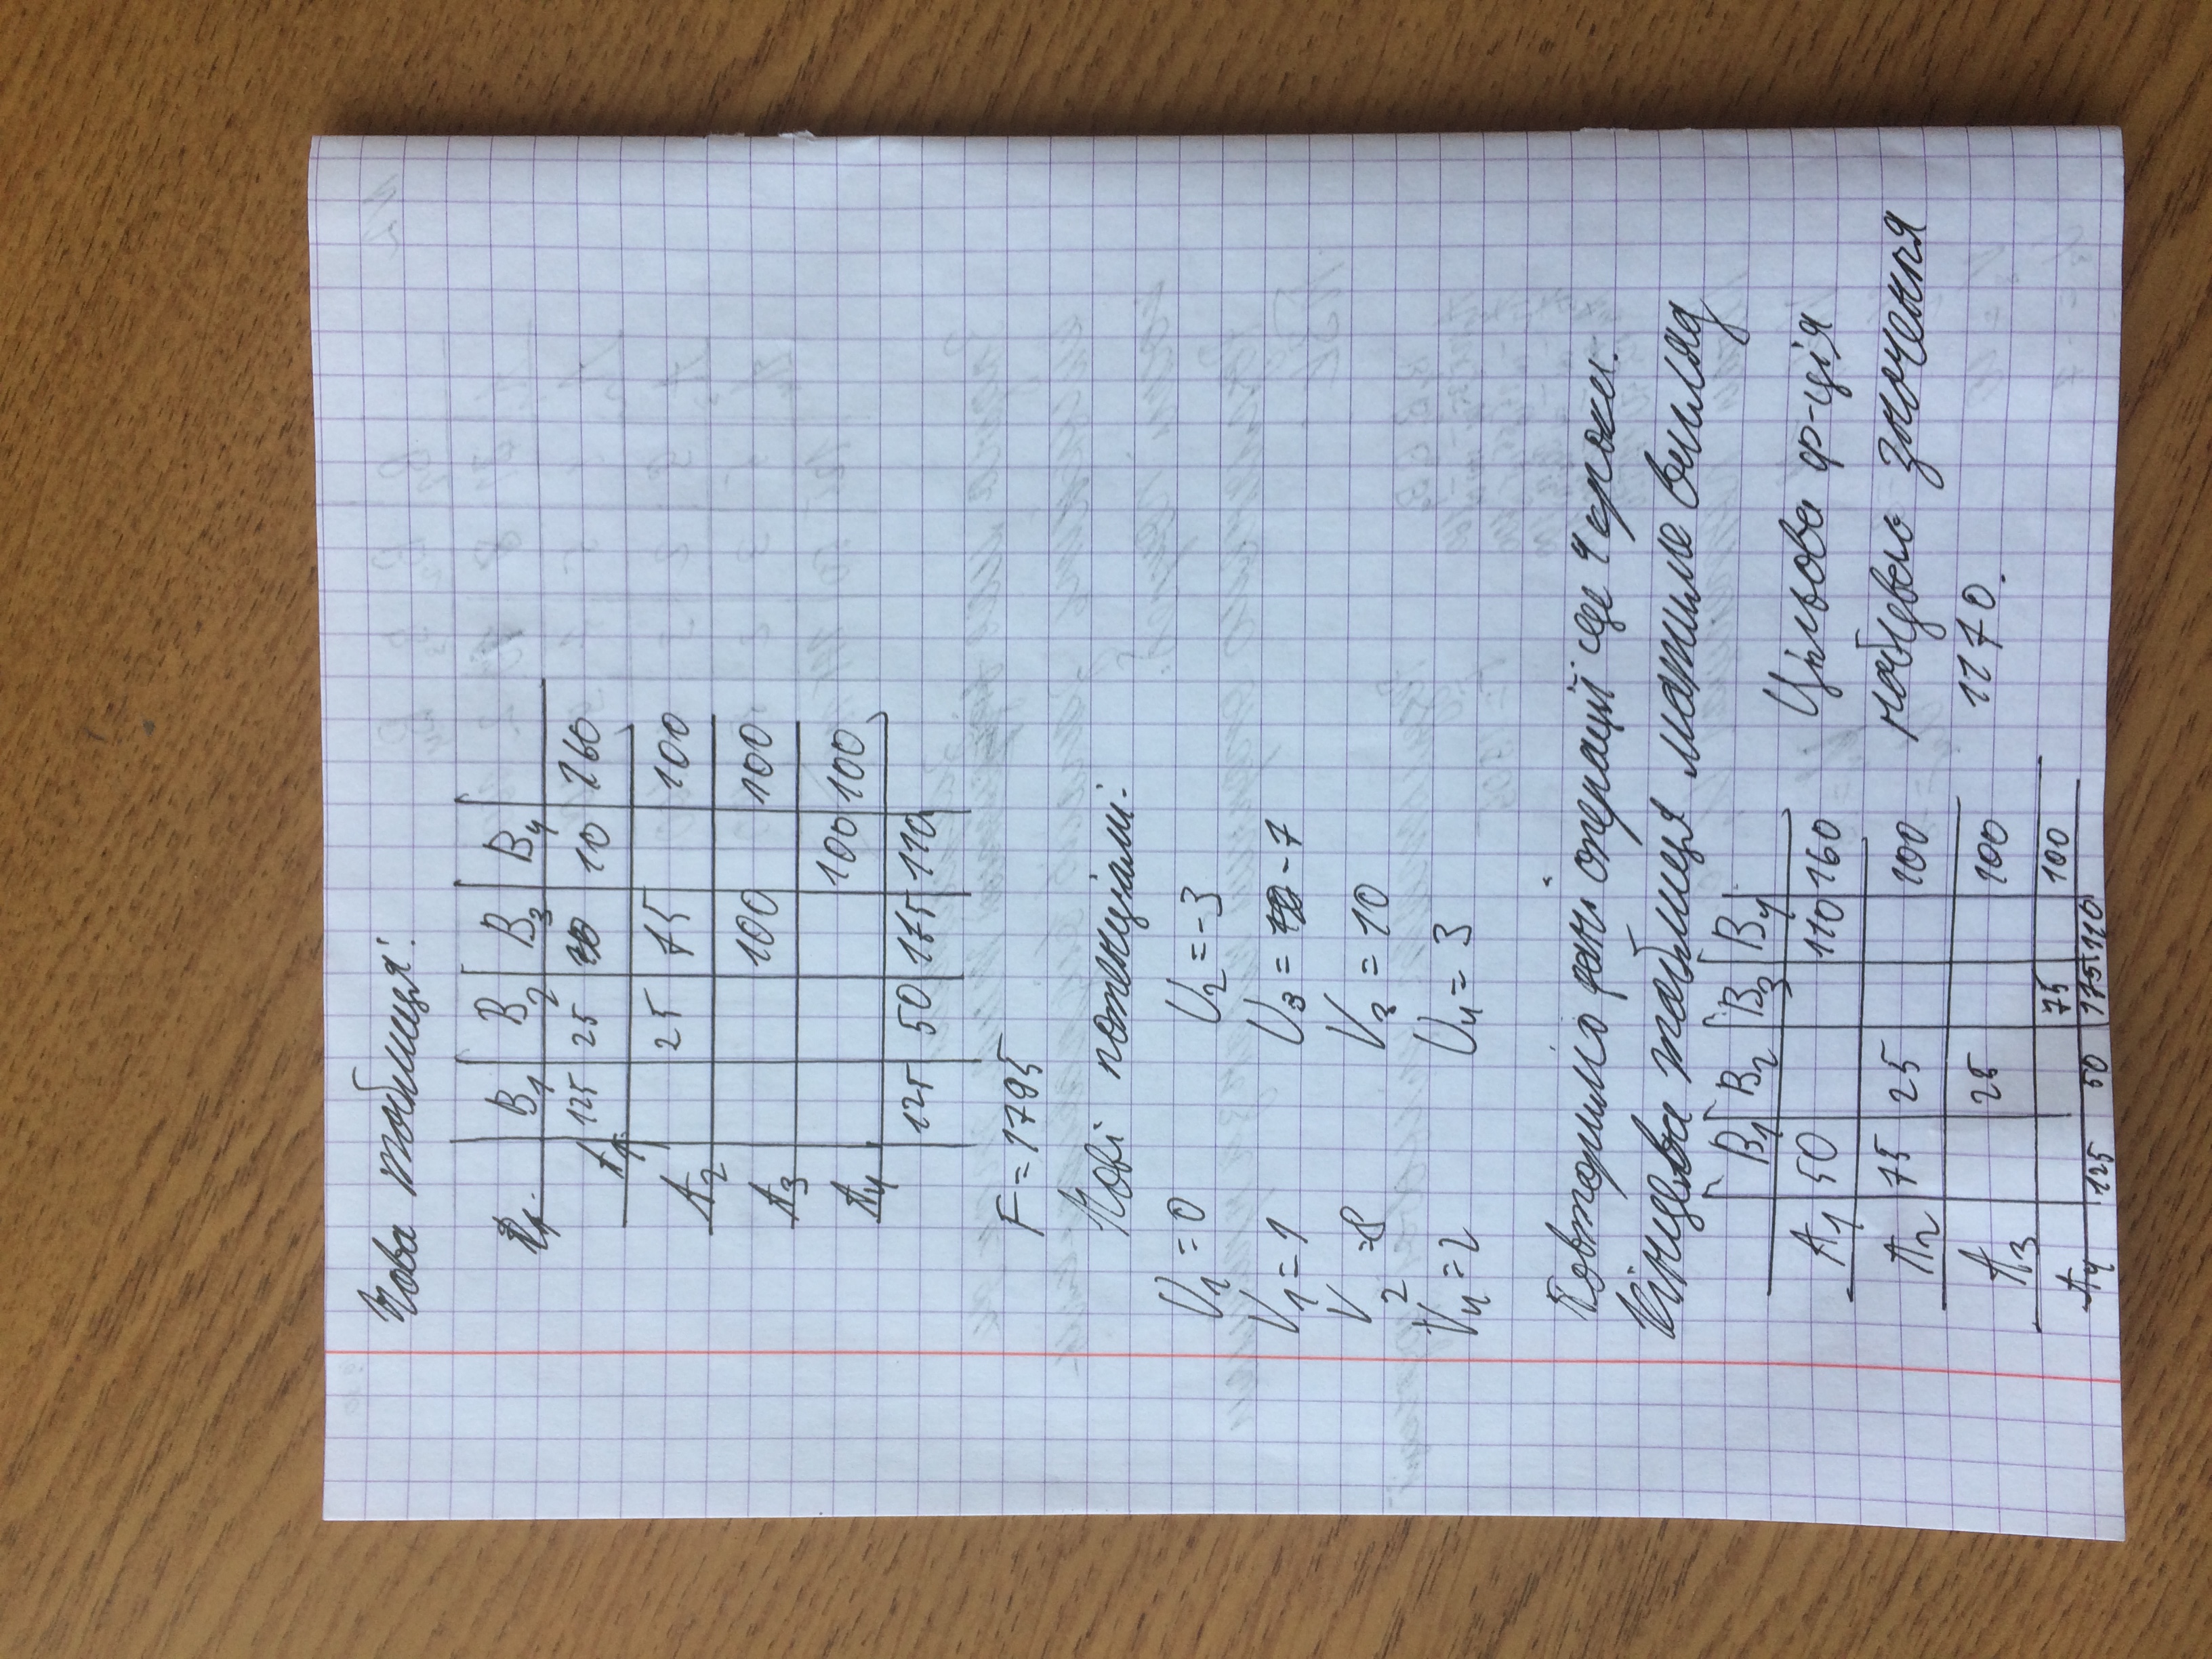 Нова таблиця:
B1 B2 B3 B4
A1 125 25 10 160
A2 25 75 100
A3 100 100
A4 100 100
125 50 175 110
F = 1795
Нові потенціали:
U1 = 0 U2 = -3
V1 = 1 U3 = -7
V2 = 8 V3 = 10
V4 = 2 U4 = 3
Повторимо дані операції ще 4 кроки.
Кінцева таблиця матиме вигляд
B1 B2 B3 B4
A1 50 110 160
A2 75 25 100
A3 25 100
A4 75 100
125 50 175 110
Цільова ф-ція
набуває значення
1170.